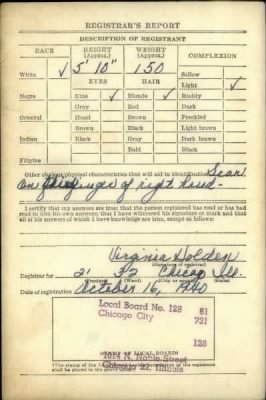 REGISTRAR'S REPORT
DESCRIPTION OF REGISTRANT
RACE HEIGHT (Approx.) WEIGHT (Approx.) COMPLEXION
White ✓ 5' 10" 150 Sallow
EYES HAIR Light ✓
Negro Blue ✓ Blonde ✓ Ruddy
Gray Red Dark
Oriental Hazel Brown Freckled
Brown Black Light brown
Indian Black Gray Dark brown
Bald Black
Filipino
Other obvious physical characteristics that will aid in identification Scar
on finger of right hand.
I certify that my answers are true; that the person registered has read or has
had read to him his own answers; that I have witnessed his signature or mark and that
all of his answers of which I have knowledge are true, except as follows:
Virginia Holden
(Signature of registrar)
Registrar for 21 32 Chicago Ill.
Date of registration October 16, 1940
Local Board No. 128 61
Chicago City 731
128
1614 N. Noble Street
Chicago 22, Illinois
(STAMP OF LOCAL BOARD)
(The stamp of the Local Board
shall be placed in the above space)